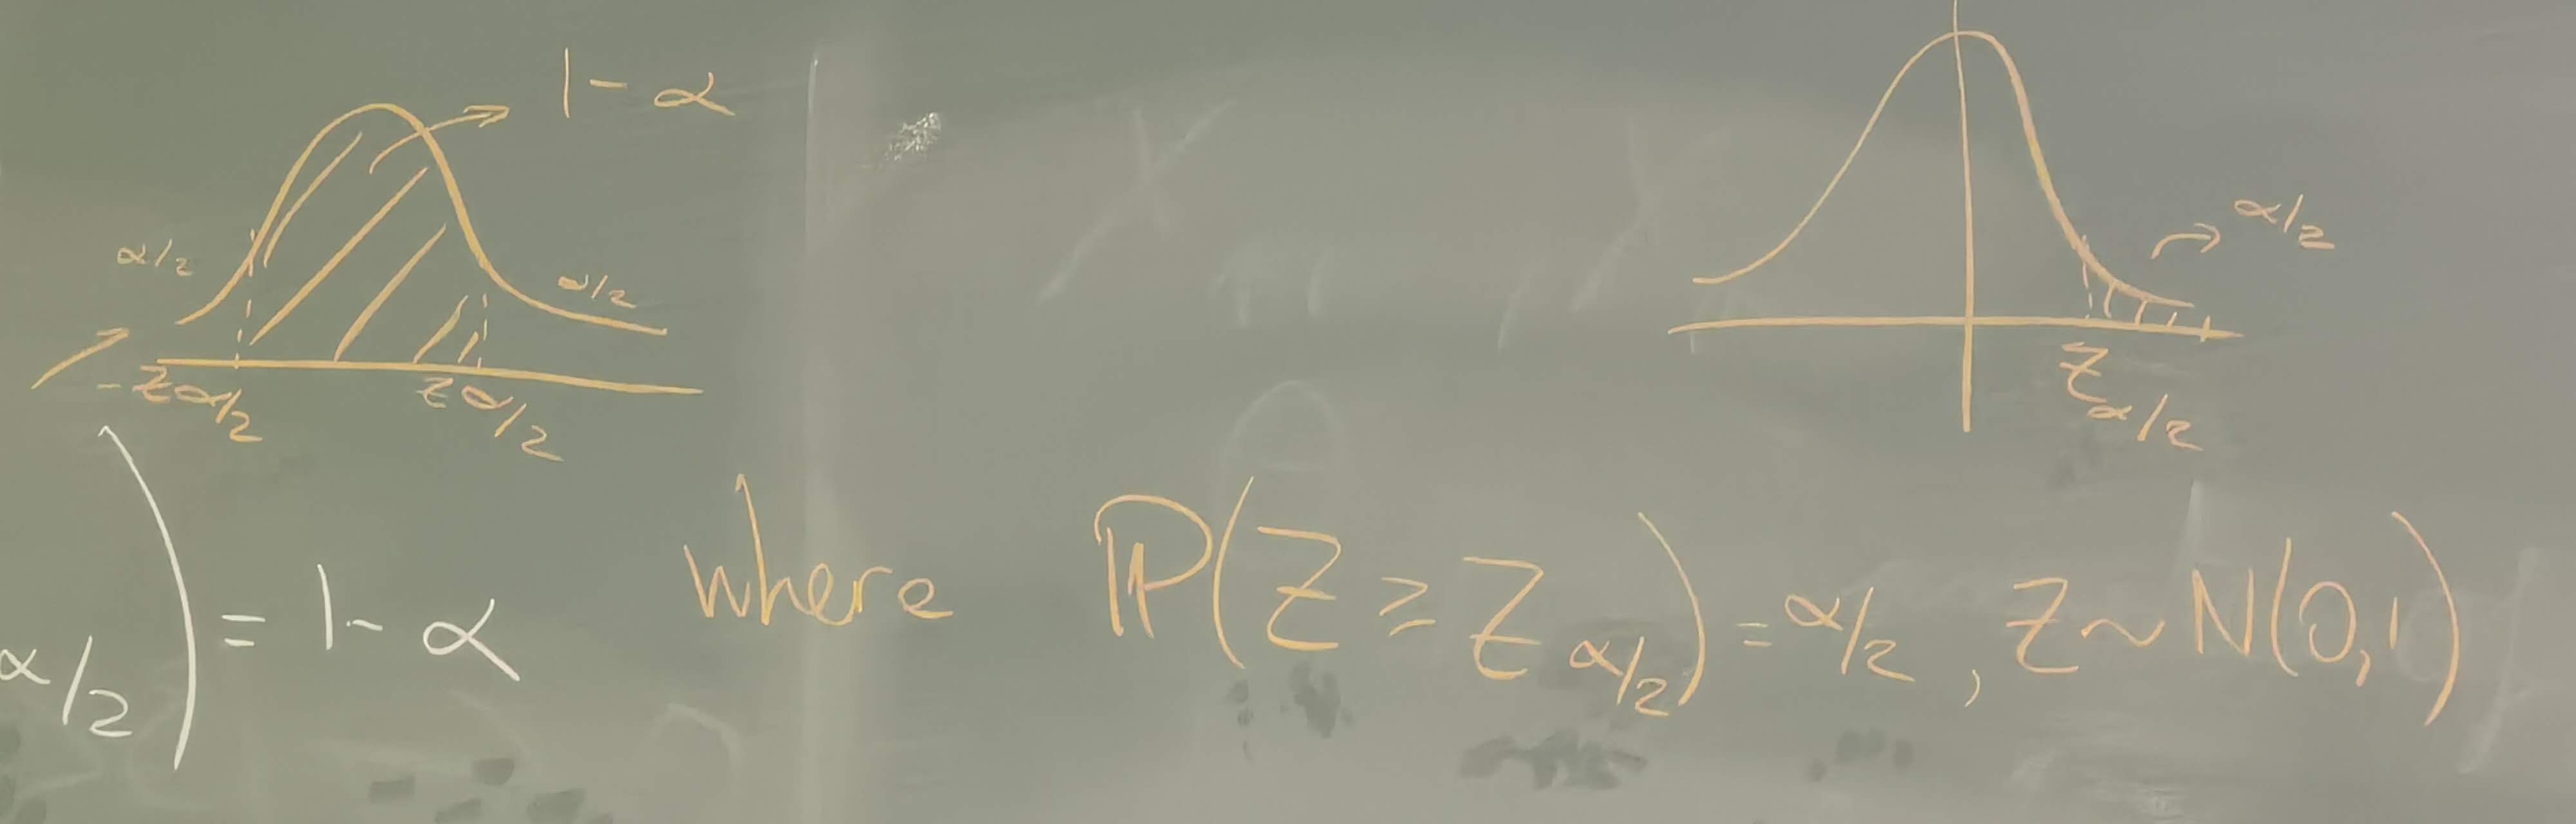 1-α
α/2
α/2
-Zα/2
Zα/2
α/2
Zα/2
α/2) = 1-α where ℙ(Z ≥ Zα/2) = α/2, Z ~ N(0,1)